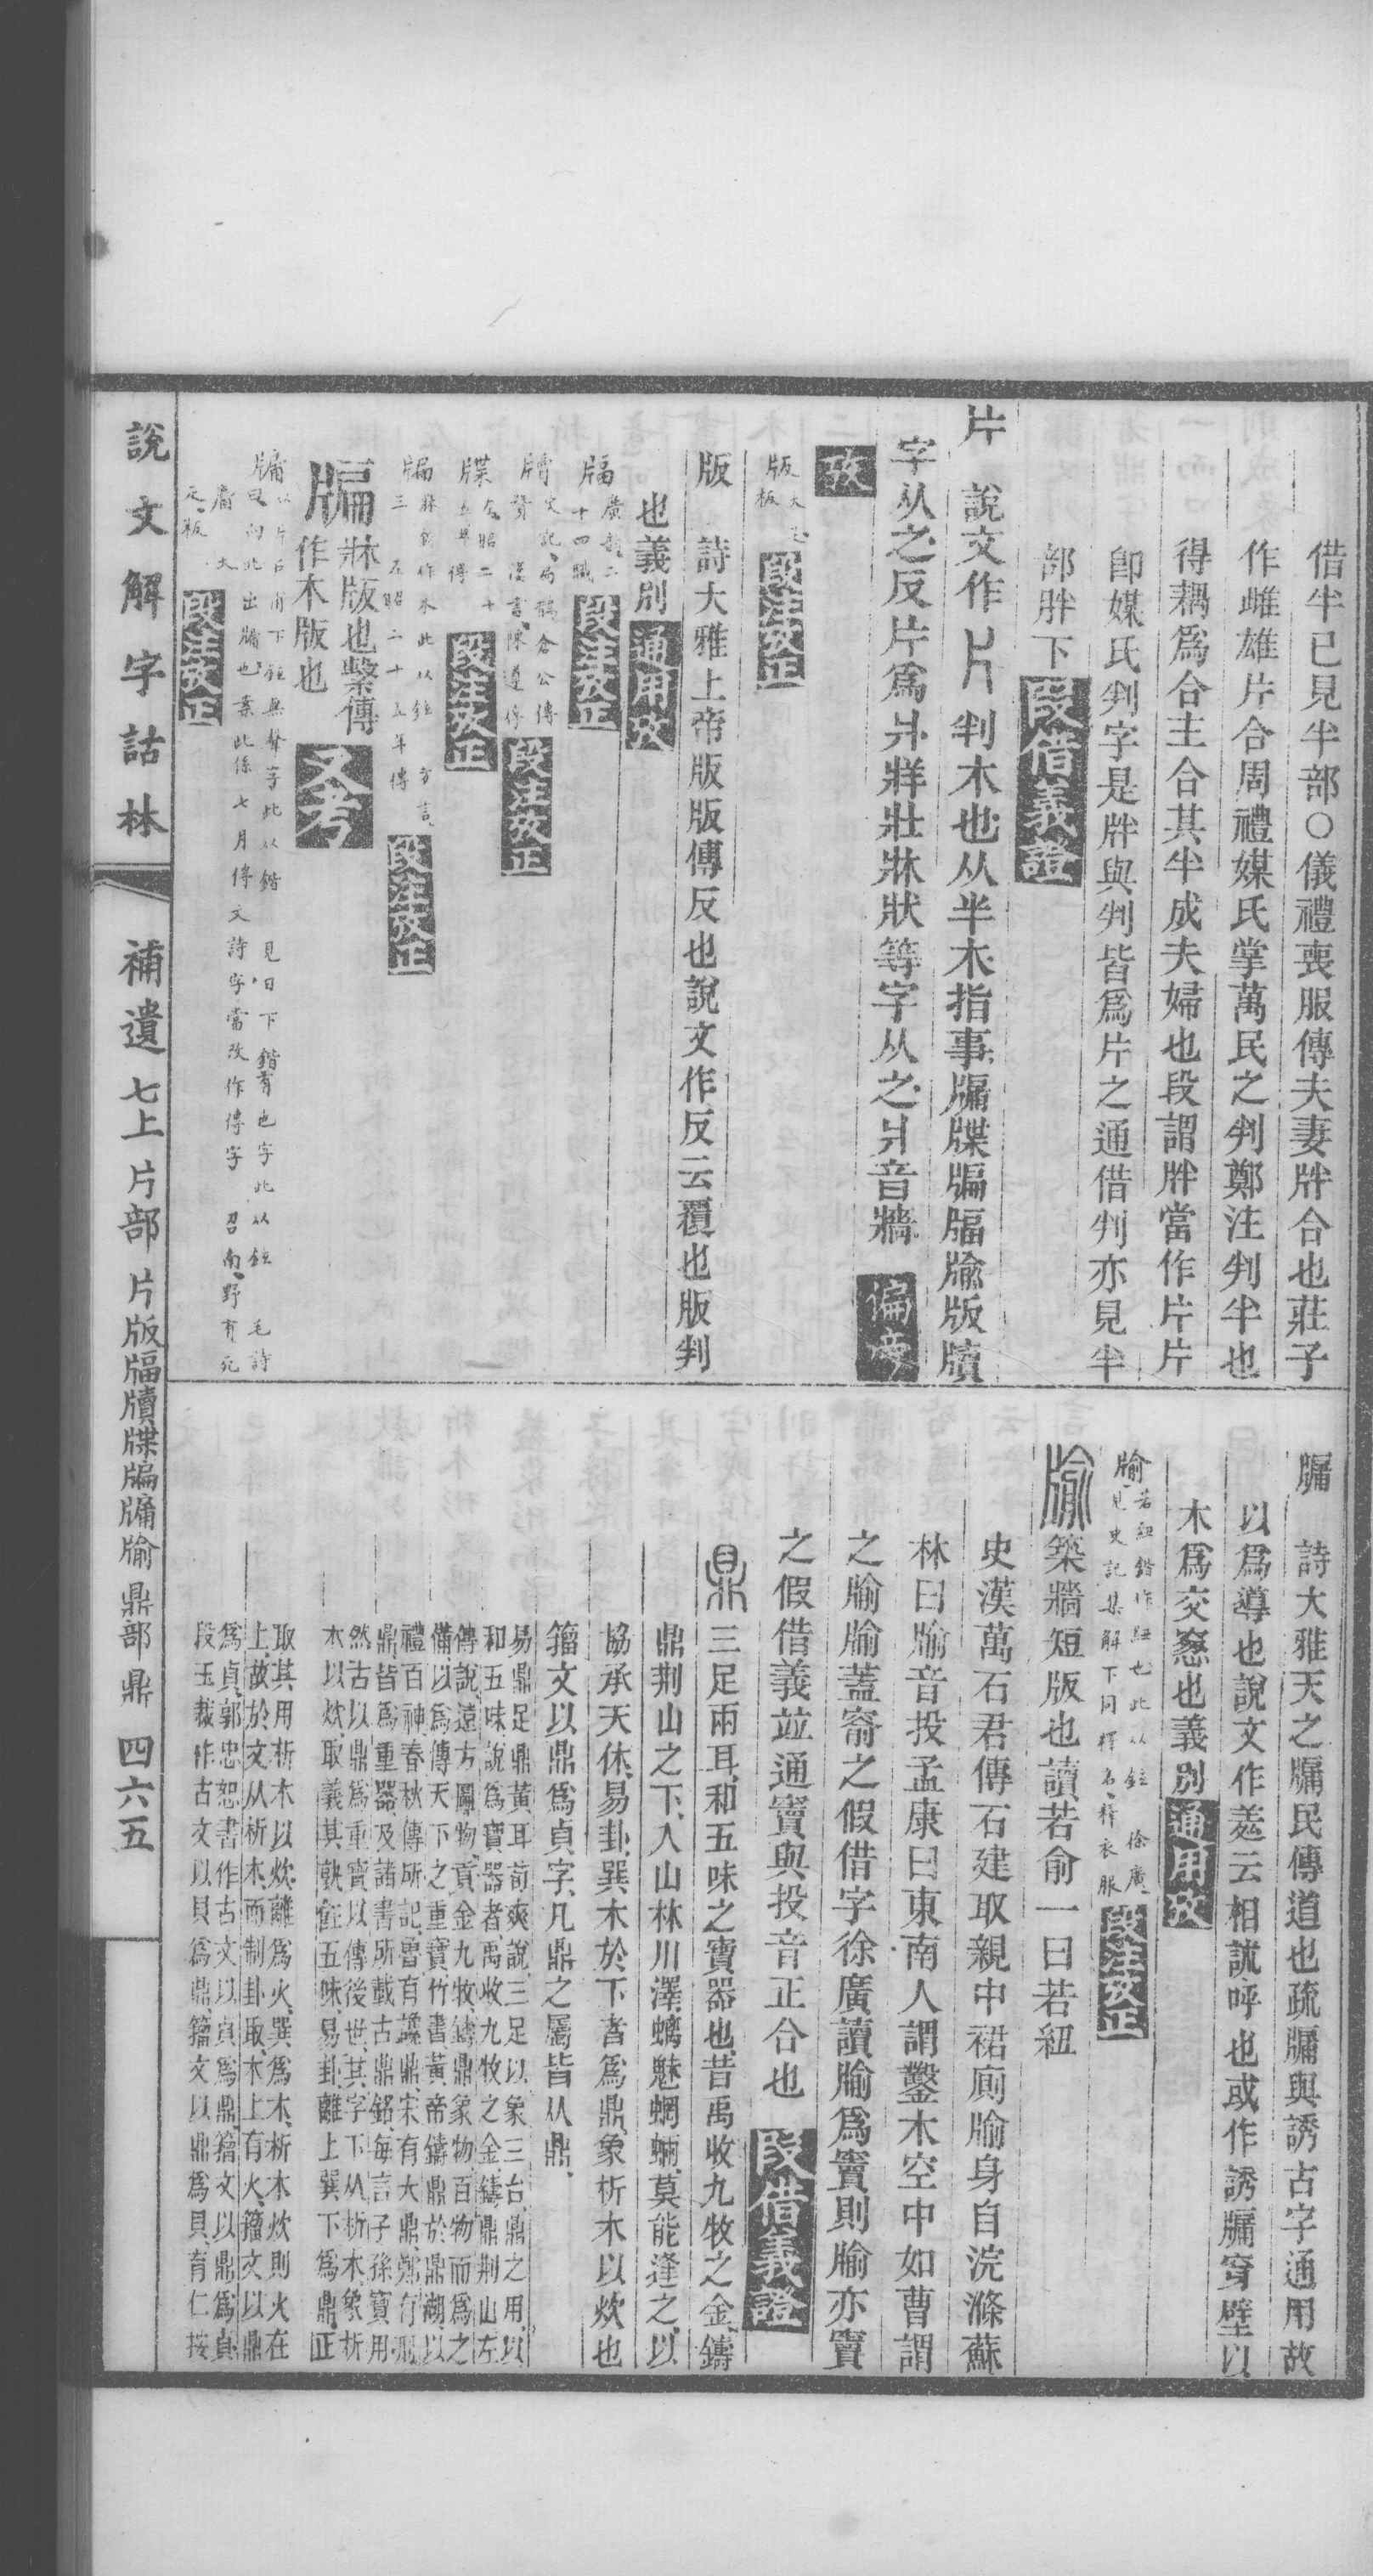 借半已見半部○儀禮喪服傳夫妻牉合也莊子
作雌雄片合周禮媒氏掌萬民之判鄭注判半也
得耦爲合主合其半成夫婦也段謂牉當作片片
卽媒氏判字是牉與判皆爲片之通借判亦見半
部胖下段借義證
片 說文作片判木也从半木指事牖牒牑牏版牘
字从之反片爲爿牂壯牀狀等字从之爿音牆 偏旁
攷
版 板 段注攷正
版 詩大雅上帝版版傳反也說文作反云覆也版判
也義別通用攷
牑 廣韵二十四職 段注攷正
牘 史記扁鵲倉公傳 漢書陳遵傳 段注攷正
牒 左昭二十五年傳 段注攷正
牑 左昭二十五年傳 方言 段注攷正
牑 牀版也繫傳作木版也 又考
牖 向北出牖也 此係七月傳文詩字當改作傳字 召南野有死 段注攷正
牖 詩大雅天之牖民傳道也疏牖與誘古字通用故
以爲導也說文作羑云相訹呼也或作誘牖穿壁以
木爲交窻也義別通用攷
牏 見史記集解下同釋名釋衣服 徐廣 段注攷正
牏築牆短版也讀若俞一曰若紐
史漢萬石君傳石建取親中裙廁牏身自浣滌蘇
林曰牏音投孟康曰東南人謂鑿木空中如曹謂
之牏牏蓋窬之假借字徐廣讀牏爲竇則牏亦竇
之假借義竝通竇與投音正合也 段借義證
鼎三足兩耳和五味之寶器也昔禹收九牧之金鑄
鼎荆山之下入山林川澤螭魅蝄蜽莫能逢之以
協承天休易卦巽木於下者爲鼎象析木以炊也
籀文以鼎爲貞字凡鼎之屬皆从鼎
易鼎足鼎黃耳荀爽說三足以象三台鼎之用以
和五味說爲寶器者禹收九牧之金鑄鼎荆山左
傳說遠方圖物貢金九牧鑄鼎象物百物而爲之
備以爲傳天下之重寶竹書黃帝鑄鼎於鼎湖以
禮百神春秋傳所記魯有讒鼎宋有大鼎
鼎皆爲重器及諸書所載古鼎銘每言子孫寶用
然古以鼎爲重寶以傳後世其字下从析木象析
木以炊取義其孰飪五味易卦離上巽下爲鼎正
取其用析木以炊離爲火巽爲木析木炊則火在
上故於文从析木而制卦取木上有火籀文以鼎
爲貞郭忠恕書作古文以貞爲鼎籀文以鼎爲貞
段玉裁作古文以貝爲鼎籀文以鼎爲貝育仁按
說文解字詁林
補遺 七上 片部 片版牑牘牒牑牖牏 鼎部 鼎 四六五